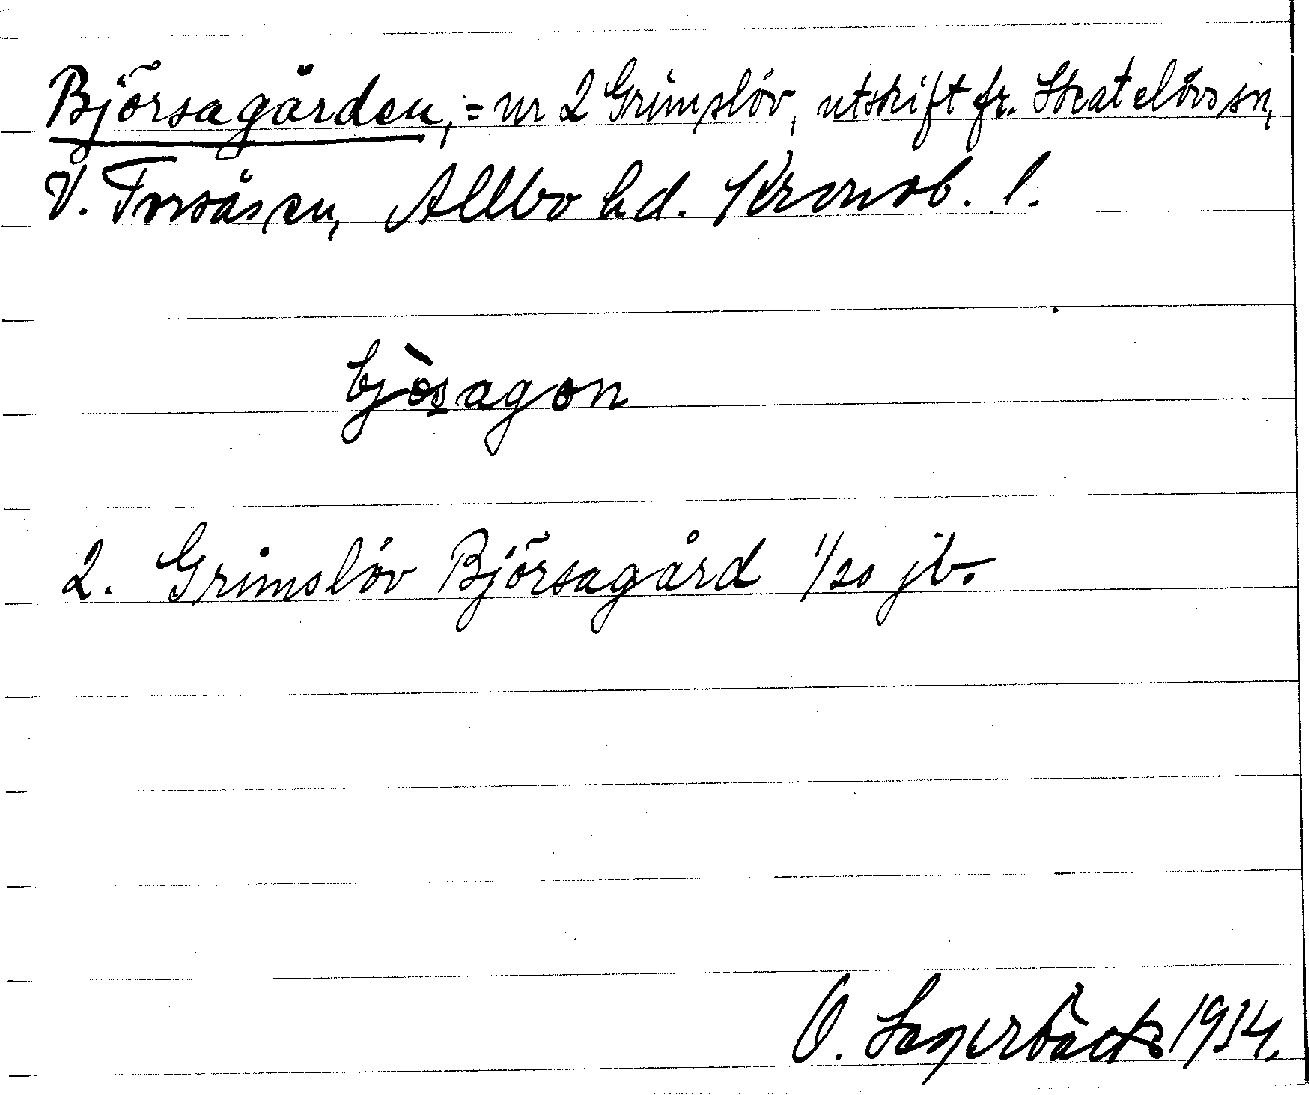 Björsagården, = nr 2 Grimslöv, utskift fr. Skatelövs sn,
V. Torsås sn, Allbo hd. Kronob. l.
bjòsagon
2. Grimslöv Björsagård 1/20 jb.
O. Lagerbäck 1934.